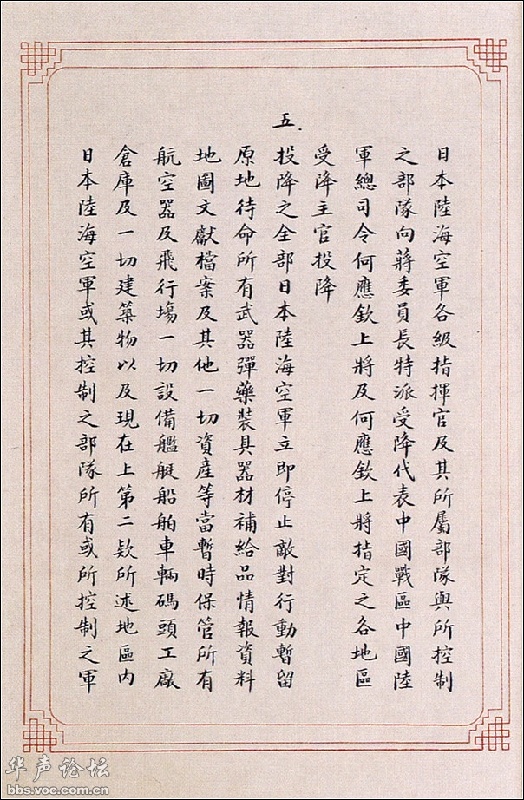 日本陸海空軍各級指揮官及其所屬部隊與所控制
之部隊向蔣委員長特派受降代表中國戰區中國陸
軍總司令何應欽上將及何應欽上將指定之各地區
受降主官投降
五、
投降之全部日本陸海空軍立即停止敵對行動暫留
原地待命所有武器彈藥裝具器材補給品情報資料
地圖文獻檔案及其他一切資產等當暫時保管所有
航空器及飛行場一切設備艦艇船舶車輛碼頭工廠
倉庫及一切建築物以及現在上第二欵所述地區內
日本陸海空軍或其控制之部隊所有或所控制之軍
华声论坛
bbs.voc.com.cn